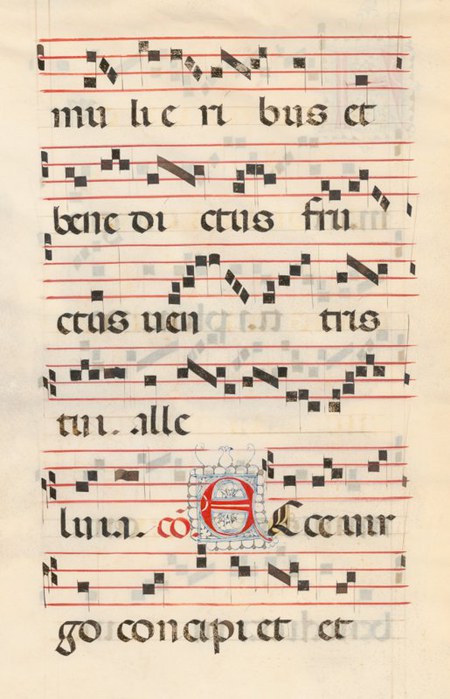 mu li e ri bus et
bene di ctus fru
ctus uen tris
tui. alle
luia. cõ Ecce uir
go concipi et et